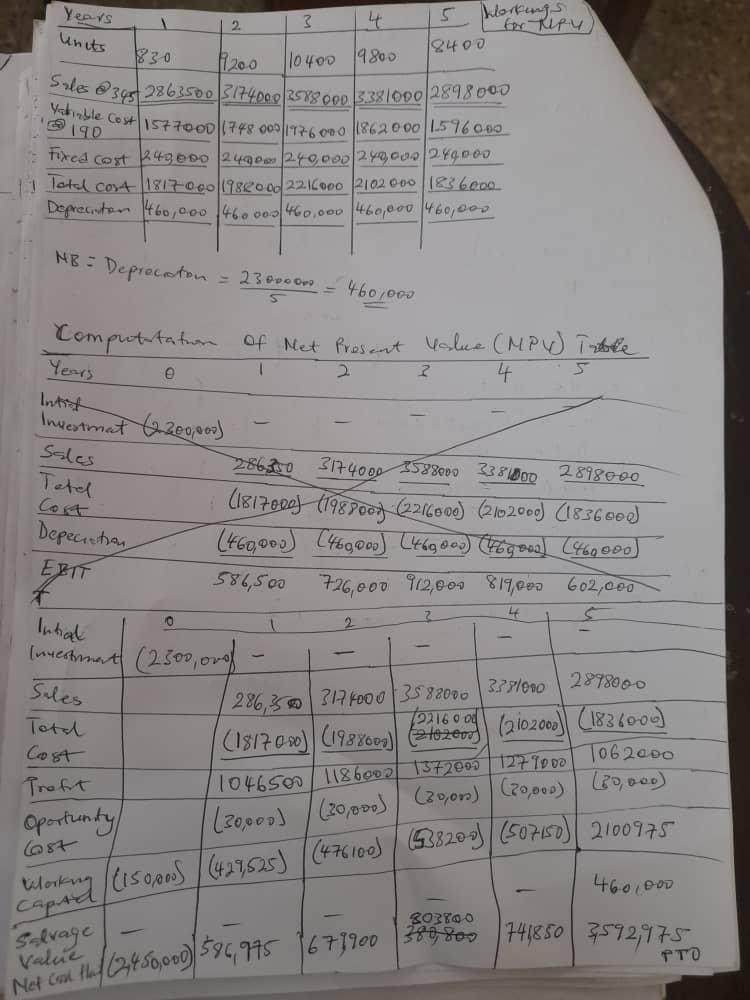 Years 1 2 3 4 5 Workings for NPV
Units 830 9200 10400 9800 8400
Sales @345 2863500 3174000 3588000 3381000 2898000
Variable cost @ 190 1577000 1748000 1976000 1862000 1596000
Fixed cost 240,000 240,000 240,000 240,000 240,000
Total cost 1817000 1988000 2216000 2102000 1836000
Depreciation 460,000 460000 460,000 460,000 460,000
NB = Deprecaton = 23000000 / 5 = 460,000
Computation Of Net Present Value (NPV) Table
Years 0 1 2 3 4 5
Intial Investment (2300,000) – – – – –
Sales 286350 3174000 3588000 3381000 2898000
Total Cost (1817000) (1988000) (2216000) (2102000) (1836000)
Depeciation (460,000) (460,000) (460,000) (460,000) (460,000)
EBIT 586,500 726,000 912,000 819,000 602,000
0 1 2 3 4 5
Intial Investment (2300,000) – – – – –
Sales 286,350 3174000 3588000 3381000 2898000
Total Cost (1817000) (1988000) (2216000) (2102000) (2102000) (1836000)
Profit 1046500 1186000 1372000 1279000 1062000
Oportunity Cost (30,000) (30,000) (30,000) (30,000) (30,000)
Working Capital (150,000) (429,525) (476100) (538200) (507150) 2100975
Salvage Value – – – – – 460,000
Net Cash (2,450,000) 586,975 679,900 803800 380,800 741,850 3,592,975
PTO